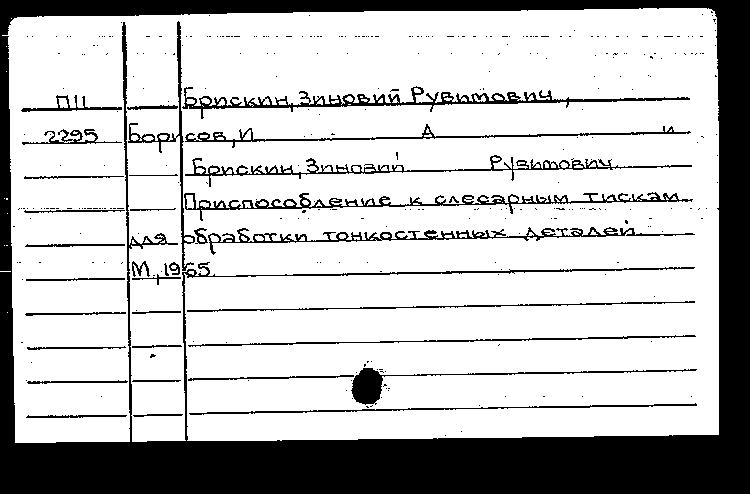 П11 Брискин, Зиновий Рувимович,
2295 Борисов, И А и
Брискин, Зиновий Рувимович
Приспособление к слесарным тискам
для обработки тонкостенных деталей
М, 1965